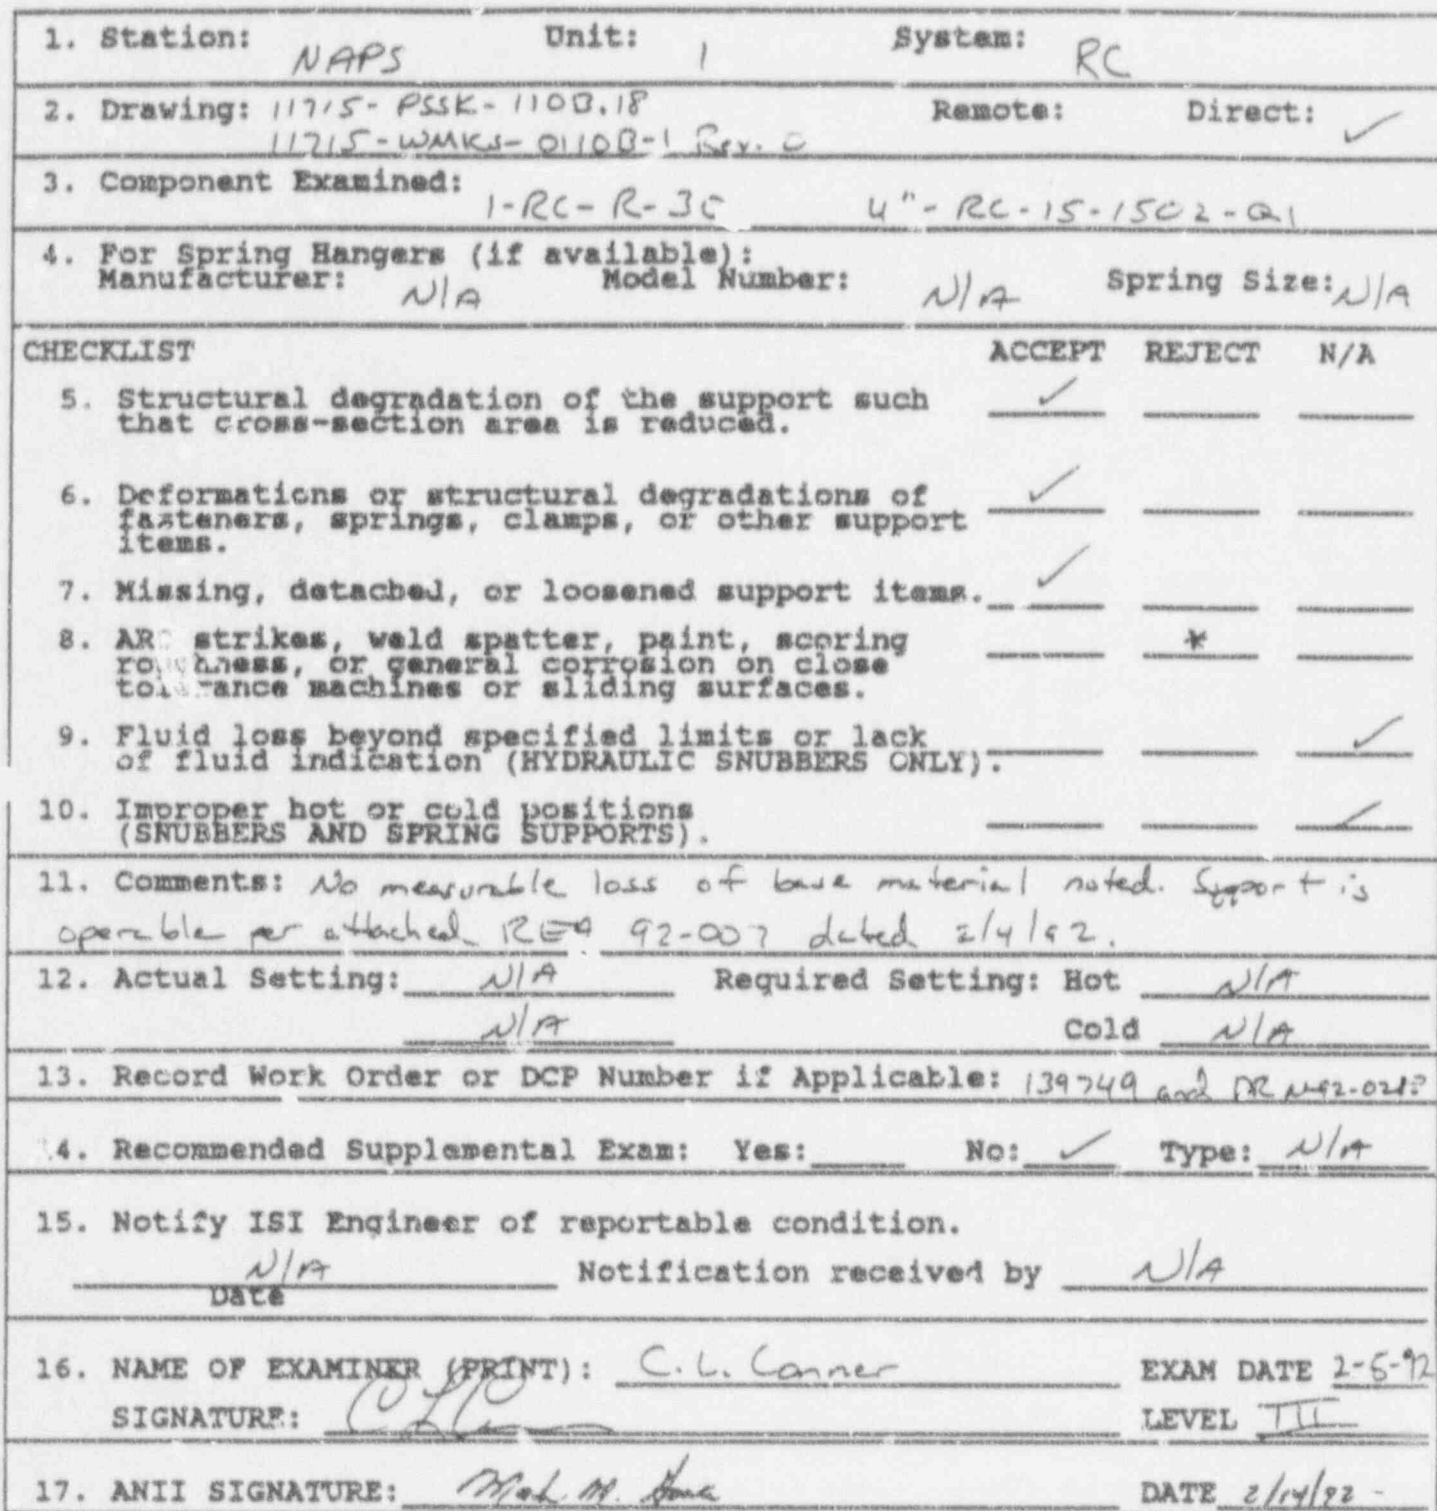 1. Station: NAPS Unit: 1 System: RC
2. Drawing: 11715-PSSK-110B.18 Remote: Direct: ✓
11715-WMKS-0110B-1 Rev. 0
3. Component Examined: 1-RC-R-3C 4"-RC-15-1502-Q1
4. For Spring Hangers (if available):
Manufacturer: N/A Model Number: N/A Spring Size: N/A
CHECKLIST ACCEPT REJECT N/A
5. Structural degradation of the support such ✓
that cross-section area is reduced.
6. Deformations or structural degradations of ✓
fasteners, springs, clamps, or other support
items.
7. Missing, detached, or loosened support items. ✓
8. ARC strikes, weld spatter, paint, scoring *
roughness, or general corrosion on close
tolerance machines or sliding surfaces.
9. Fluid loss beyond specified limits or lack ✓
of fluid indication (HYDRAULIC SNUBBERS ONLY).
10. Improper hot or cold positions ✓
(SNUBBERS AND SPRING SUPPORTS).
11. Comments: No measurable loss of base material noted. Support is
operable per attached REA 92-007 dated 2/4/92.
12. Actual Setting: N/A Required Setting: Hot N/A
N/A Cold N/A
13. Record Work Order or DCP Number if Applicable: 139749 and DR
4. Recommended Supplemental Exam: Yes: No: ✓ Type: N/A
15. Notify ISI Engineer of reportable condition.
N/A Notification received by N/A
Date
16. NAME OF EXAMINER (PRINT): C. L. Conner EXAM DATE 2-5-92
SIGNATURE: LEVEL III
17. ANII SIGNATURE: DATE 2/14/92